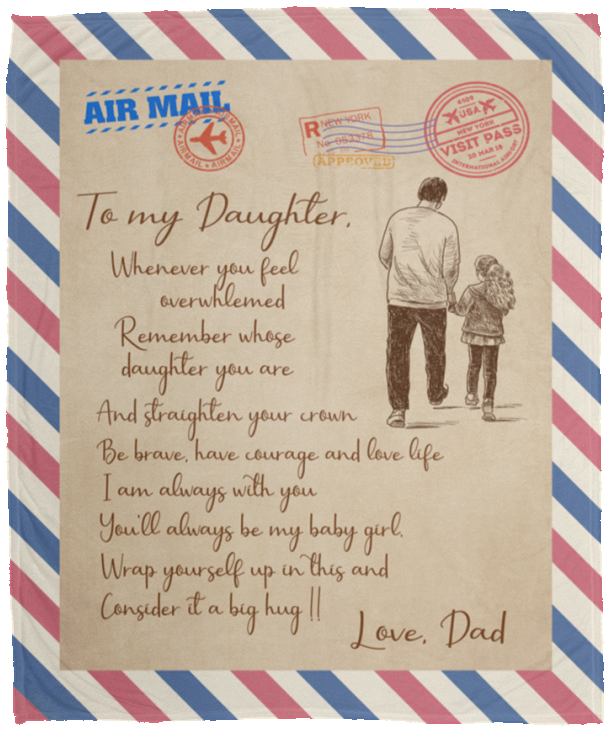 AIR MAIL
AIRMAIL AIRMAIL
R NEW YORK
No 053378
APPROVED
USA
NEW YORK
VISIT PASS
20 MAR 18
INTERNATIONAL AIRPORT
To my Daughter,
Whenever you feel
overwhlemed
Remember whose
daughter you are
And straighten your crown
Be brave, have courage and love life
I am always with you
You'll always be my baby girl,
Wrap yourself up in this and
Consider it a big hug !!
Love, Dad